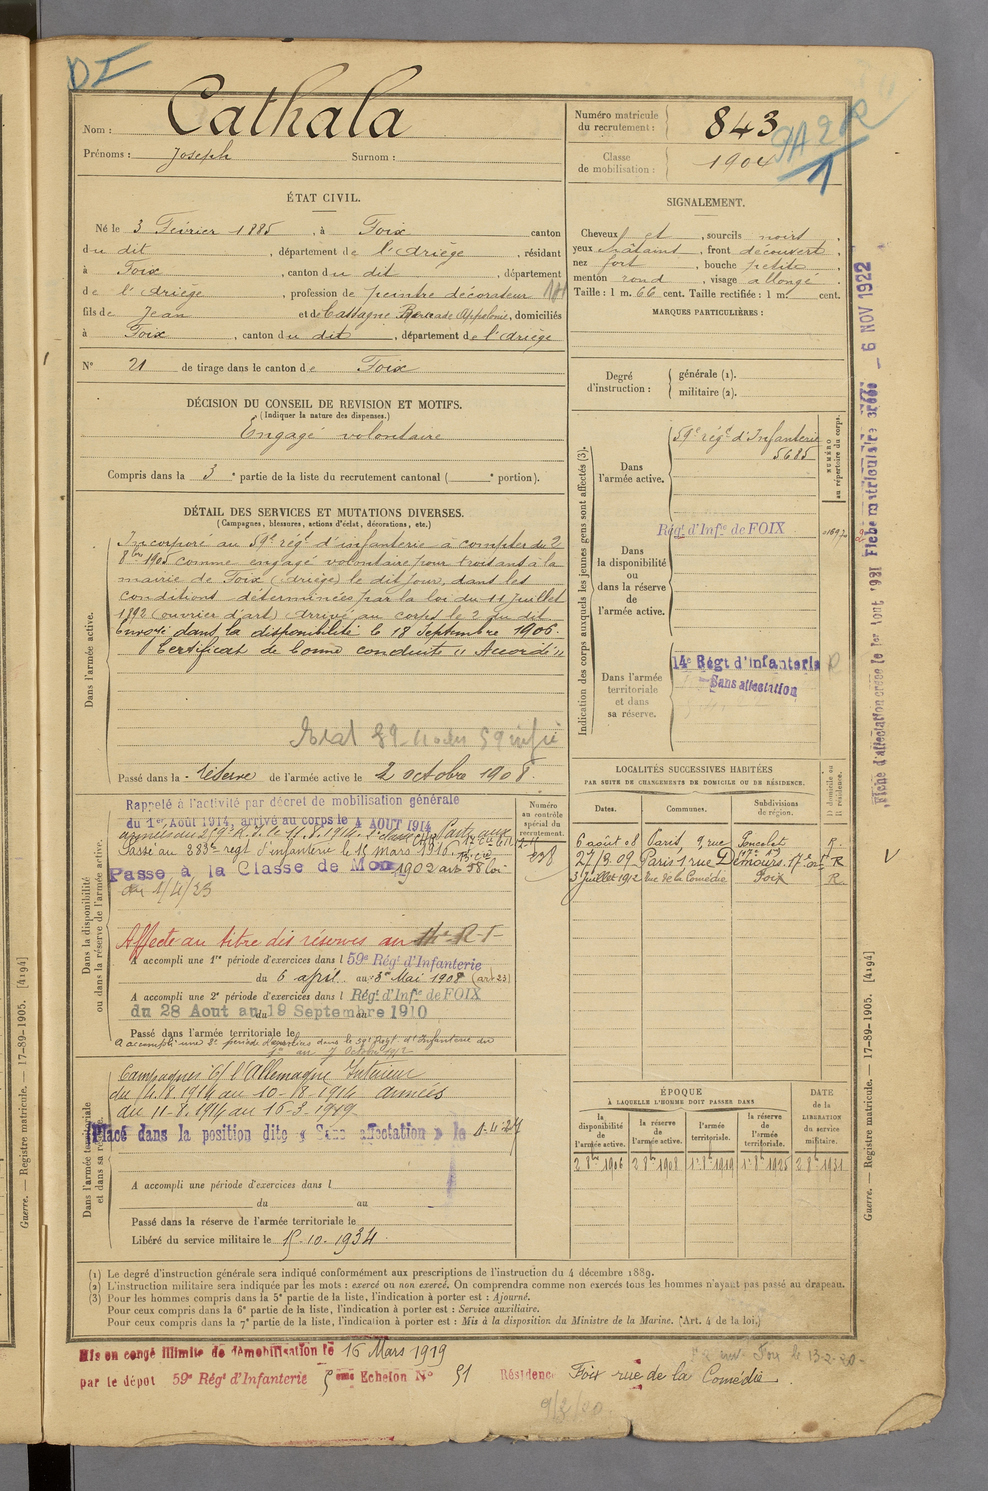 DI
Nom : Cathala
Prénoms : Joseph Surnom :
Numéro matricule du recrutement : 843
Classe de mobilisation : 1904
ÉTAT CIVIL.
Né le 3 Février 1885, à Foix canton
du dit, département de l'Ariège, résidant
à Foix, canton du dit, département
de l'Ariège, profession de peintre décorateur
fils de Jean et de Cassagne Appolonie, domiciliés
à Foix, canton du dit, département de l'Ariège
N° 21 de tirage dans le canton de Foix
DÉCISION DU CONSEIL DE REVISION ET MOTIFS.
(Indiquer la nature des dispenses.)
Engagé volontaire
Compris dans la 3e partie de la liste du recrutement cantonal ( e portion).
DÉTAIL DES SERVICES ET MUTATIONS DIVERSES.
(Campagnes, blessures, actions d'éclat, décorations, etc.)
Dans l'armée active.
Incorporé au 59e régt d'infanterie à compter du 2
8bre 1905 comme engagé volontaire pour trois ans à la
mairie de Foix (Ariège) le dit jour, dans les
conditions déterminées par la loi du 11 juillet
1892 (ouvrier d'art) Arrivé au corps le 2 du dit
Envoyé dans la disponibilité le 18 Septembre 1906.
Certificat de bonne conduite "Accordé"
Passé dans la réserve de l'armée active le 2 octobre 1908.
Dans la disponibilité ou dans la réserve de l'armée active.
Rappelé à l'activité par décret de mobilisation générale
du 1er Août 1914, arrivé au corps le 4 AOUT 1914
Passé au 283e régt d'infanterie le 15 mars 1916
Passe à la Classe de Mob 1902 art 58 loi
du 1/4/23
Affecté au titre des réserves au 14e R.I
A accompli une 1re période d'exercices dans l 59e Régt d'Infanterie
du 6 avril au 3 Mai 1908 (art 23)
A accompli une 2e période d'exercices dans l Régt d'Infie de FOIX
du 28 Aout au 19 Septembre 1910
Passé dans l'armée territoriale le
A accompli une 2e période d'exercices dans le 59e Régt d'Infanterie du
1er au 7 Octobre 1912
Numéro au contrôle spécial du recrutement.
Dans l'armée territoriale et dans sa réserve.
Campagnes c/ l'Allemagne Intérieur
du 4.8.1914 au 10-8-1914 Armées
du 11-8-1914 au 15-3-1919
Placé dans la position dite « Sans affectation » le 1-4-27
A accompli une période d'exercices dans l
du au
Passé dans la réserve de l'armée territoriale le
Libéré du service militaire le 15-10-1934
SIGNALEMENT.
Cheveux et, sourcils noirs,
yeux châtains, front découvert,
nez fort, bouche petite,
menton rond, visage allongé.
Taille : 1 m. 66 cent. Taille rectifiée : 1 m. cent.
MARQUES PARTICULIÈRES :
Degré d'instruction : générale (1).
militaire (2).
Indication des corps auxquels les jeunes gens sont affectés (3).
NUMÉRO au répertoire du corps.
Dans l'armée active.
59e régt d'Infanterie
5685
Dans la disponibilité ou dans la réserve de l'armée active.
Régt d'Infie de FOIX
Dans l'armée territoriale et dans sa réserve.
14e Régt d'infanterie
Sans affectation
LOCALITÉS SUCCESSIVES HABITÉES
PAR SUITE DE CHANGEMENTS DE DOMICILE OU DE RÉSIDENCE.
Dates. Communes. Subdivisions de région. D domicile ou R résidence.
6 août 08 Paris, 9, rue Poncelet R.
27/8.09 Paris 1 rue Demours. 17e arrt R
3 Juillet 1912 Rue de la Comédie Foix R.
ÉPOQUE
À LAQUELLE L'HOMME DOIT PASSER DANS
la disponibilité de l'armée active. la réserve de l'armée active. l'armée territoriale. la réserve de l'armée territoriale. DATE de la LIBÉRATION du service militaire.
2 8bre 1906 2 8bre 1908 1er 8bre 1919 1er 8bre 1925 2 8bre 1931
Fiche d'affectation créée le 1er Aout 1921 Fiche matriculaire créée — 6 NOV 1922
Guerre. — Registre matricule. — 17-89-1905. [4194]
Guerre. — Registre matricule. — 17-89-1905. [4194]
(1) Le degré d'instruction générale sera indiqué conformément aux prescriptions de l'instruction du 4 décembre 1889.
(2) L'instruction militaire sera indiquée par les mots : exercé ou non exercé. On comprendra comme non exercés tous les hommes n'ayant pas passé au drapeau.
(3) Pour les hommes compris dans la 5e partie de la liste, l'indication à porter est : Ajourné.
Pour ceux compris dans la 6e partie de la liste, l'indication à porter est : Service auxiliaire.
Pour ceux compris dans la 7e partie de la liste, l'indication à porter est : Mis à la disposition du Ministre de la Marine. (Art. 4 de la loi.)
Mis en congé illimité de démobilisation le 16 Mars 1919
par le dépot 59e Régt d'Infanterie 5ème Echelon N° 51 Résidence Foix rue de la Comédie.